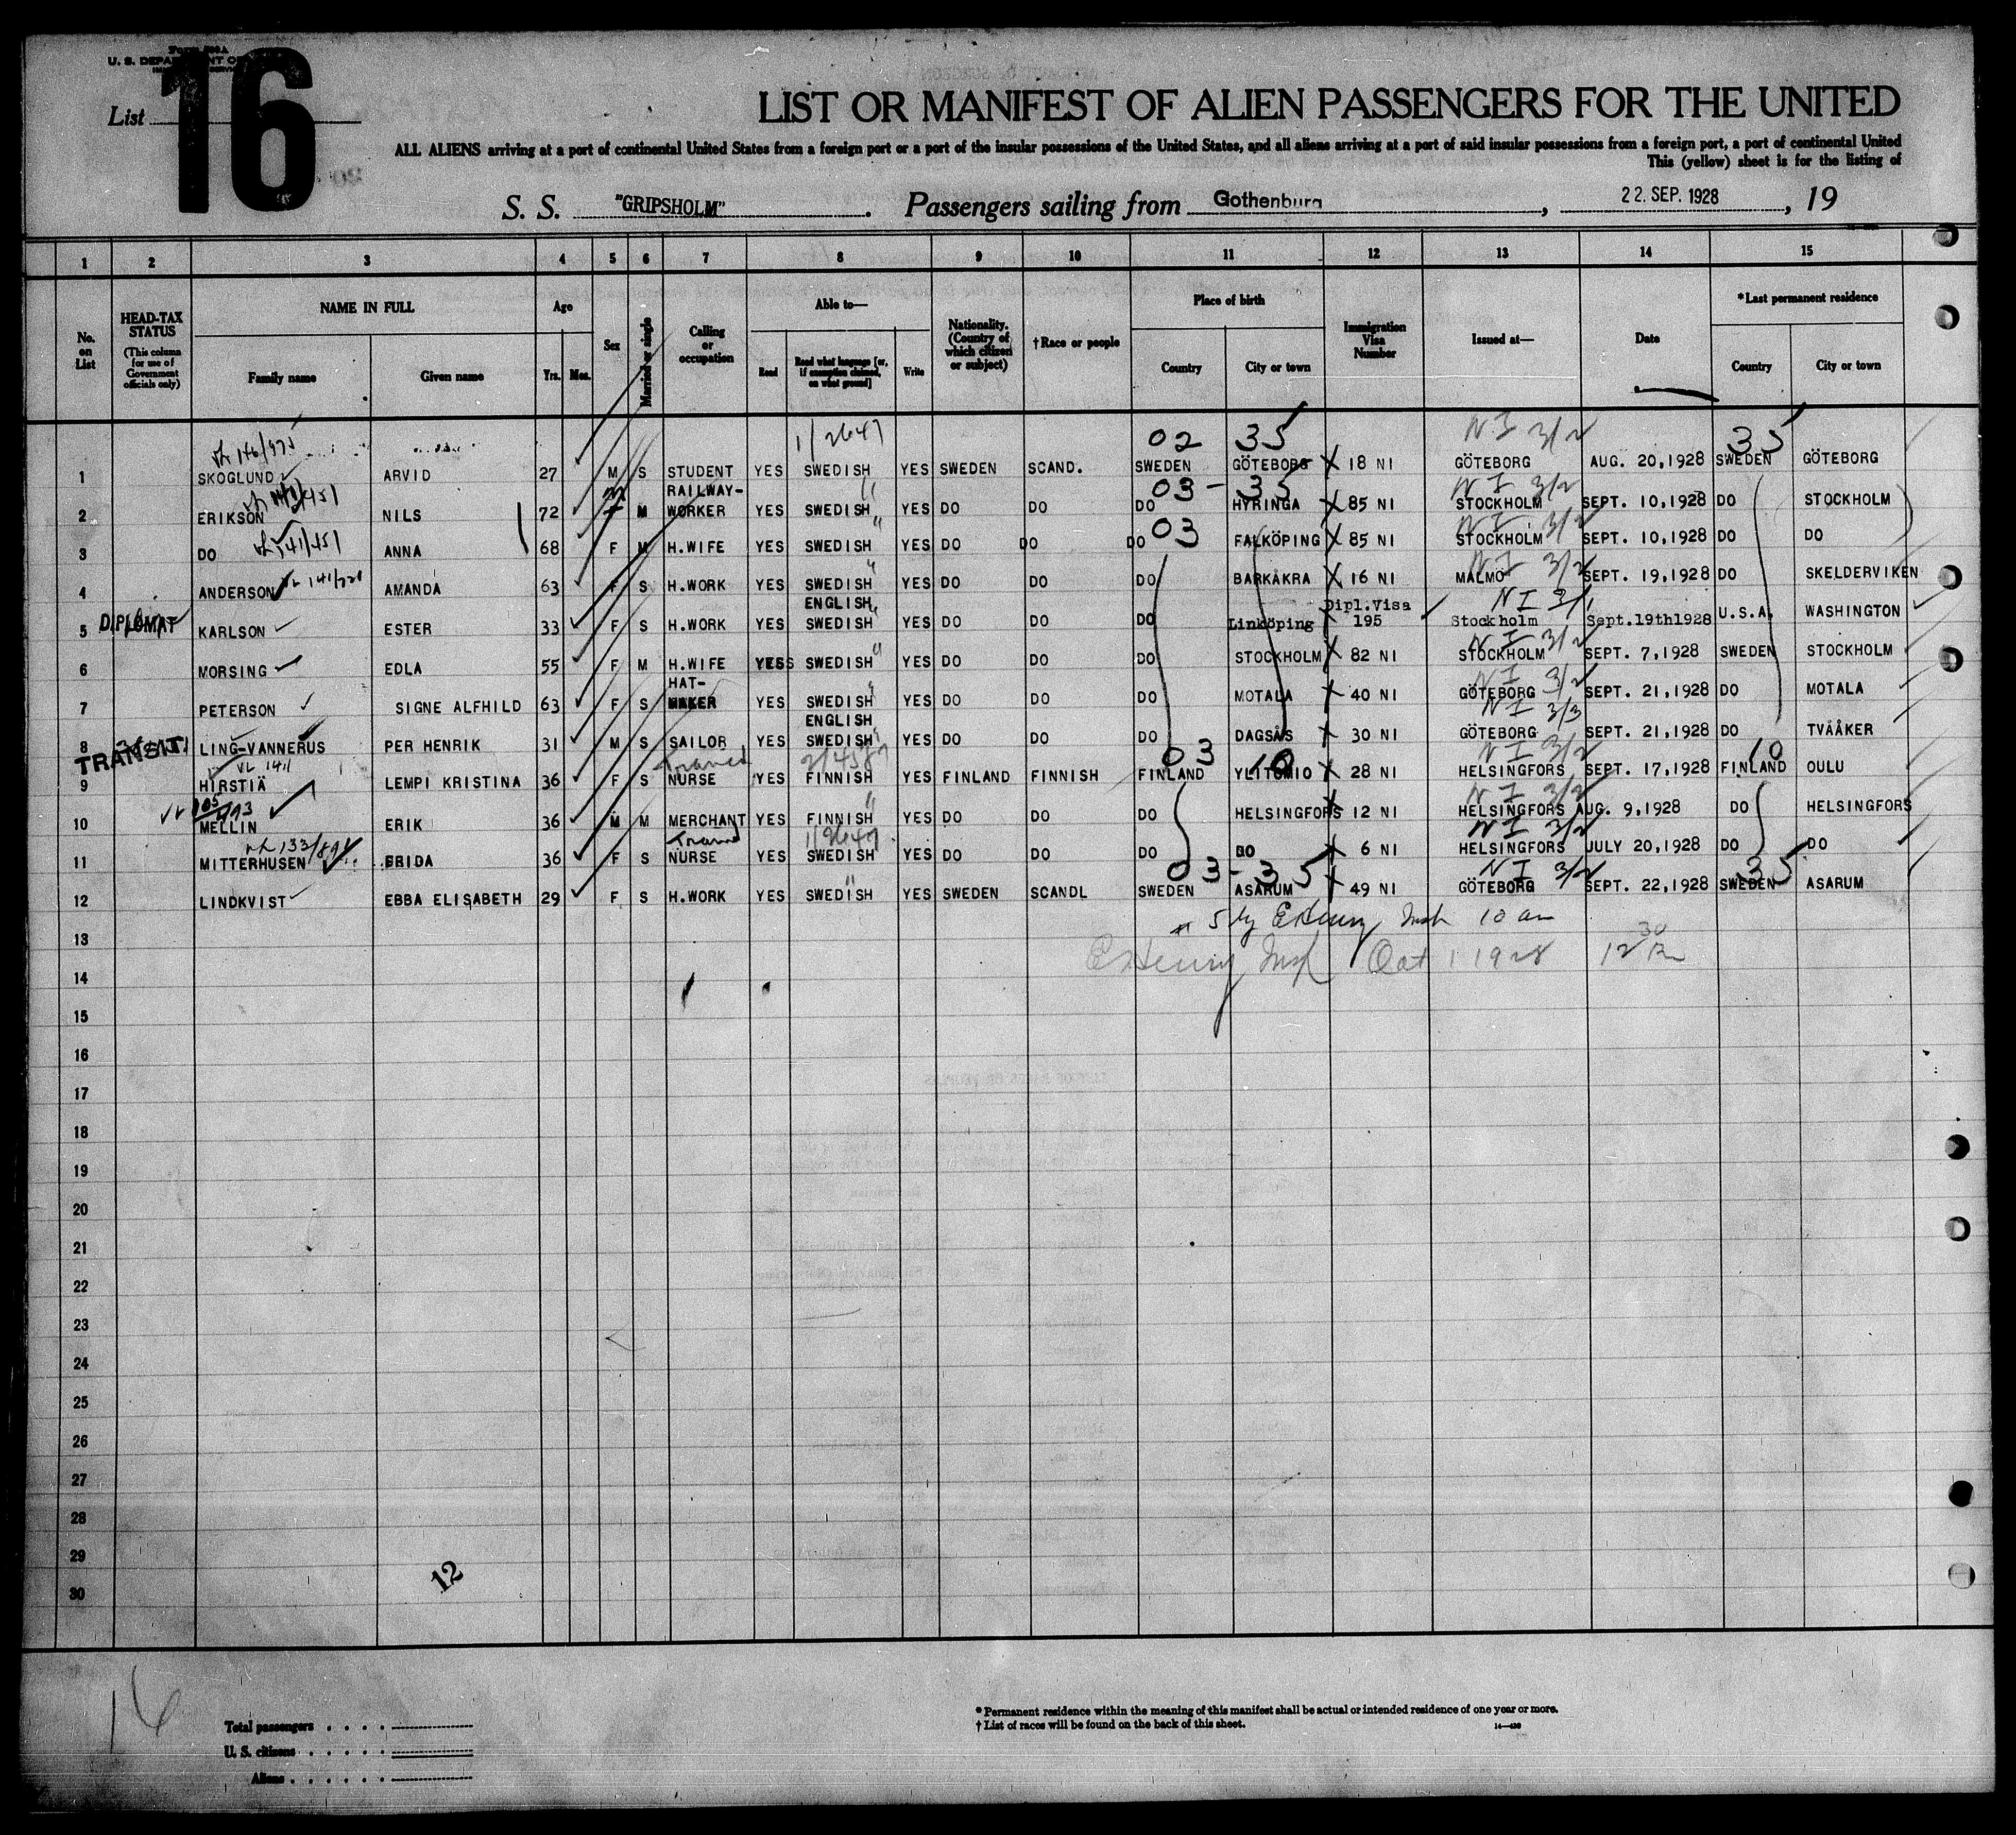 Form 500A
U. S. DEPARTMENT OF
List 16
LIST OR MANIFEST OF ALIEN PASSENGERS FOR THE UNITED
ALL ALIENS arriving at a port of continental United States from a foreign port or a port of the insular possessions of the United States, and all aliens arriving at a port of said insular possessions from a foreign port, a port of continental United
This (yellow) sheet is for the listing of
S. S. "GRIPSHOLM". Passengers sailing from Gothenburg, 22. SEP. 1928, 19
1 2 3 4 5 6 7 8 9 10 11 12 13 14 15
No. on List
HEAD-TAX STATUS (This column for use of Government officials only)
NAME IN FULL Family name Given name
Age Yrs. Mos.
Sex
Married or single
Calling or occupation
Able to— Read Read what language [or, if exemption claimed, on what ground] Write
Nationality. (Country of which citizen or subject)
†Race or people
Place of birth Country City or town
Immigration Visa Number
Issued at—
Date
*Last permanent residence Country City or town
1/2647 02 35 NI 3/2 35
1 SKOGLUND ARVID 27 M S STUDENT YES SWEDISH YES SWEDEN SCAND. SWEDEN GÖTEBORG 18 NI GÖTEBORG AUG. 20,1928 SWEDEN GÖTEBORG
03 - 35 NI 3/2
2 ERIKSON NILS 72 M M RAILWAY-WORKER YES SWEDISH YES DO DO DO HYRINGA 85 NI STOCKHOLM SEPT. 10,1928 DO STOCKHOLM
03 NI 3/2
3 DO ANNA 68 F M H.WIFE YES SWEDISH YES DO DO DO FALKÖPING 85 NI STOCKHOLM SEPT. 10,1928 DO DO
NI 3/2
4 ANDERSON AMANDA 63 F S H.WORK YES SWEDISH YES DO DO DO BARKÅKRA 16 NI MALMÖ SEPT. 19,1928 DO SKELDERVIKEN
NI 3/1
5 DIPLOMAT KARLSON ESTER 33 F S H.WORK YES ENGLISH, SWEDISH YES DO DO DO Linköping Dipl.Visa 195 Stockholm Sept.19th1928 U.S.A. WASHINGTON
NI 3/2
6 MORSING EDLA 55 F M H.WIFE YES SWEDISH YES DO DO DO STOCKHOLM 82 NI STOCKHOLM SEPT. 7,1928 SWEDEN STOCKHOLM
NI 3/2
7 PETERSON SIGNE ALFHILD 63 F S HAT-MAKER YES SWEDISH YES DO DO DO MOTALA 40 NI GÖTEBORG SEPT. 21,1928 DO MOTALA
NI 3/3
8 TRANSIT LING-VANNERUS PER HENRIK 31 M S SAILOR YES ENGLISH SWEDISH YES DO DO DO DAGSÅS 30 NI GÖTEBORG SEPT. 21,1928 DO TVÅÅKER
Trained 03 10 NI 3/2 10
9 HIRSTIÄ LEMPI KRISTINA 36 F S NURSE YES FINNISH YES FINLAND FINNISH FINLAND YLITORNIO 28 NI HELSINGFORS SEPT. 17,1928 FINLAND OULU
NI 3/2
10 MELLIN ERIK 36 M M MERCHANT YES FINNISH YES DO DO DO HELSINGFORS 12 NI HELSINGFORS AUG. 9,1928 DO HELSINGFORS
Trained 1/2647 NI 3/2
11 MITTERHUSEN FRIDA 36 F S NURSE YES SWEDISH YES DO DO DO DO 6 NI HELSINGFORS JULY 20,1928 DO DO
03 - 35 NI 3/2 35
12 LINDKVIST EBBA ELISABETH 29 F S H.WORK YES SWEDISH YES SWEDEN SCANDL SWEDEN ASARUM 49 NI GÖTEBORG SEPT. 22,1928 SWEDEN ASARUM
13
Oct 1 1928
14
15
16
17
18
19
20
21
22
23
24
25
26
27
28
29
30
12
16
Total passengers
U. S. citizens
Aliens
* Permanent residence within the meaning of this manifest shall be actual or intended residence of one year or more.
† List of races will be found on the back of this sheet.